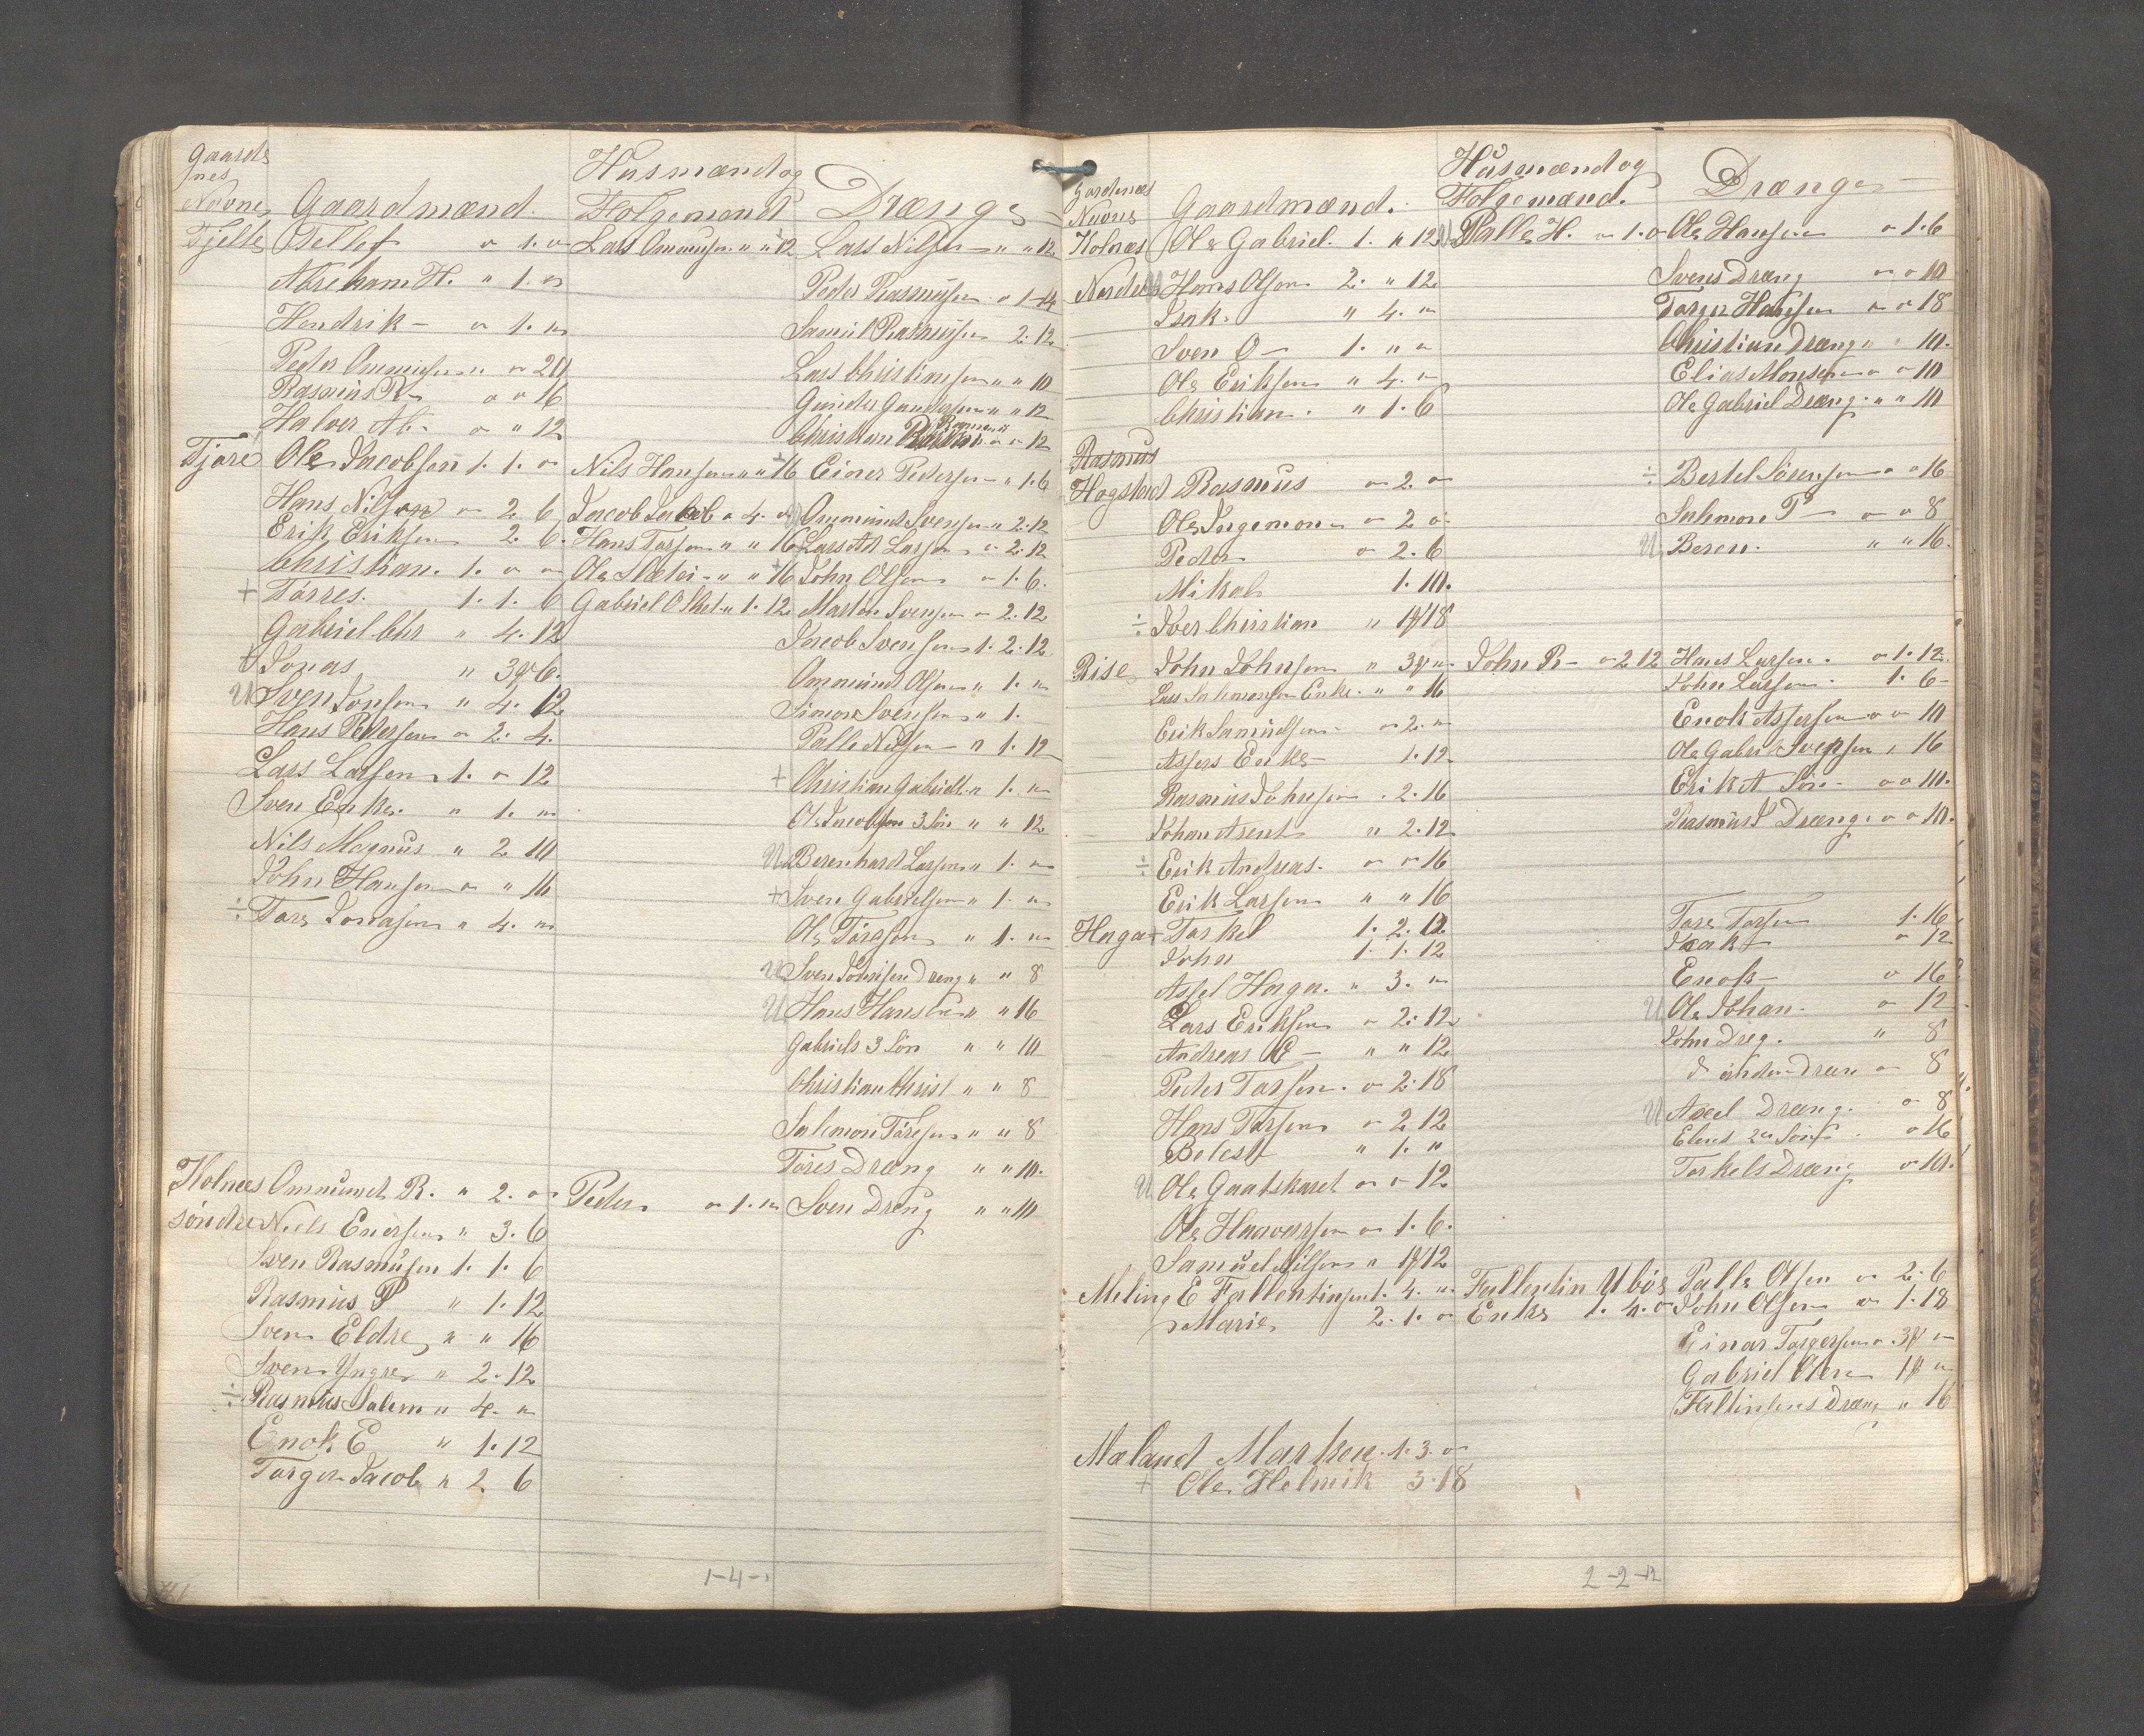 Gaardenes Navne Gaardmænd. Husmænd og Folgemænd Drænge
Tjelte Tellef " 1. " Lars Ommunsen " " 12 Lars Nilsen " " 12
Abreham H. " 1. " Peder Rasmusen " 1-14
Hendrik " 1. " Samuel Rasmusen 2. 12
Peder Ommunsen " " 20 Lars Christiansen " " 10
Rasmus R " " 16 Gunder Gundersen " " 12
Halver Ab. " " 12 Christian Rasmus " " 12
Tjøre Ole Jacobsen 1. 1. " Nils Hansen " " 16 Einer Pedersen " 1. 6
Hans Nilsen " 2. 6 Jacob Jakob " 4. " Ommund Svensen " 2. 12
Erik Eriksen 2. 6. Hans Tarsen " " 16 Lars Ad Larsen " 2. 12
Christian. 1. " " Ole Slætei " " 16 John Olsen " 1. 6.
+ Törres. 1. 1. 6 Gabriel Olhel " 1. 12 Martin Svensen " 2. 12
Gabriel Chr " 4. 12 Jacob Svensen 1. 2. 12
+ Jonas " 3 6. Ommund Olsen " 1. "
U Sven Jonsen " 4. 12 Simon Svensen " 1.
Hans Pedersen " 2. 4. Palle Nilsen " 1. 12
Lars Larsen 1. " 12 + Christian Gabrielt " 1. "
Sven Enke. " 1. " Ole Jacobsen 3 Sön " " 12
Nils Magnus " 2 10 U Berenhard Larsen " 1. "
John Hansen " " 16 + Sven Gabrielsen " 1. "
÷ Tore Jonasen " 4. " Ole Töresen " 1. "
U Sven Johnsen Dreng " " 8
U Hans Hansen " " 16
Gabriels 3 Sön " " 10
Christian Christ " " 8
Salemon Töresen " " 8
Töres Dræng " " 10.
Kolnæs Ommund R. " 2. " Peder " 1. " Sven Dreng " " 10
söndre Niels Enersen " 3. 6
Sven Rasmusen 1. 1. 6
Rasmus P " 1. 12
Sven Eldre " " 16
Sven Yngre " 2. 12
÷ Rasmus Salem " 4. "
Enok E " 1. 12
Torger Jacob " 2 6
1-4-1
Gardenæs Navne Gaardmænd. Husmænd og Folgemænd. Drænge
Kolnæs Ole Gabriel. 1. " 12 Palle H. " 1. " Ole Hansen " 1. 6
Nordre Hans Olsen 2. " 12 Svens Dræng " " 10
Isak. " 4. " Torger Hansen " " 18
Sven O 1. " " Christian Dræng " " 10.
Ole Eriksen " 4. " Elias Monsen " " 10
Christian. " 1. 6 Ole Gabriel Dræng. " " 10
Rasmus
Hogstad Rasmus " 2. " ÷ Bertel Sörensen " " 16
Ole Ingemon " 2 " Salemon P " " 8
Peder " 2. 6 U Beren. " " 16.
Mikal 1. 10.
÷ Iver Christian " 1 18
Rise John Johnsen " 3 " John R " 2 12 Hans Larsen. " 1. 12
Lars Salemonsen Enke. " " 16 John Larsen. 1. 6
Erik Samuelsen " 2. " Enok Assersen " " 10
Assers Enke 1. 12 Ole Gabriel Svensen " 16
Rasmus Johnsen. 2. 16 Erik A Sön " " 10.
Johan Arent " 2. 12 Rasmus S Dræng " " 10.
÷ Erik Andreas. " " 16
Erik Larsen " " 16
Haga Torkel 1. 2. 12 Tore Torsen 1. 16
John 1. 1. 12 Isak " 12
Assel Haga. " 3. " Enok " 16
Lars Eriksen " 2. 12 U Ole Johan. " 12
Andreas E " " 12 John Dreg. " 8
Peder Tarsen. " 2. 18 d anden Dræn " 8
Hans Tarsen " 2 12 U Axel Dræng. " 8
Bolest " 1. " Elens 2en Sön " 16
U Ole Gaatskaret " " 12 Torkels Dræng " 10.
Ole Haaversen " 1. 6.
Samuel Nilsen " 1 12
Meling E Fallentinsen 1. 4. " Fallentin Ubö Palle Olsen " 2. 6
Marie 2. 1. " Enke 1. 4. " John Olsen " 1. 18
Einar Torgersen " 3 "
Gabriel Olsen 1 "
Faltintines Dræng " 16
Mæland Marken. 1. 3. "
+ Ole Helmik 3. 18
2-2-12